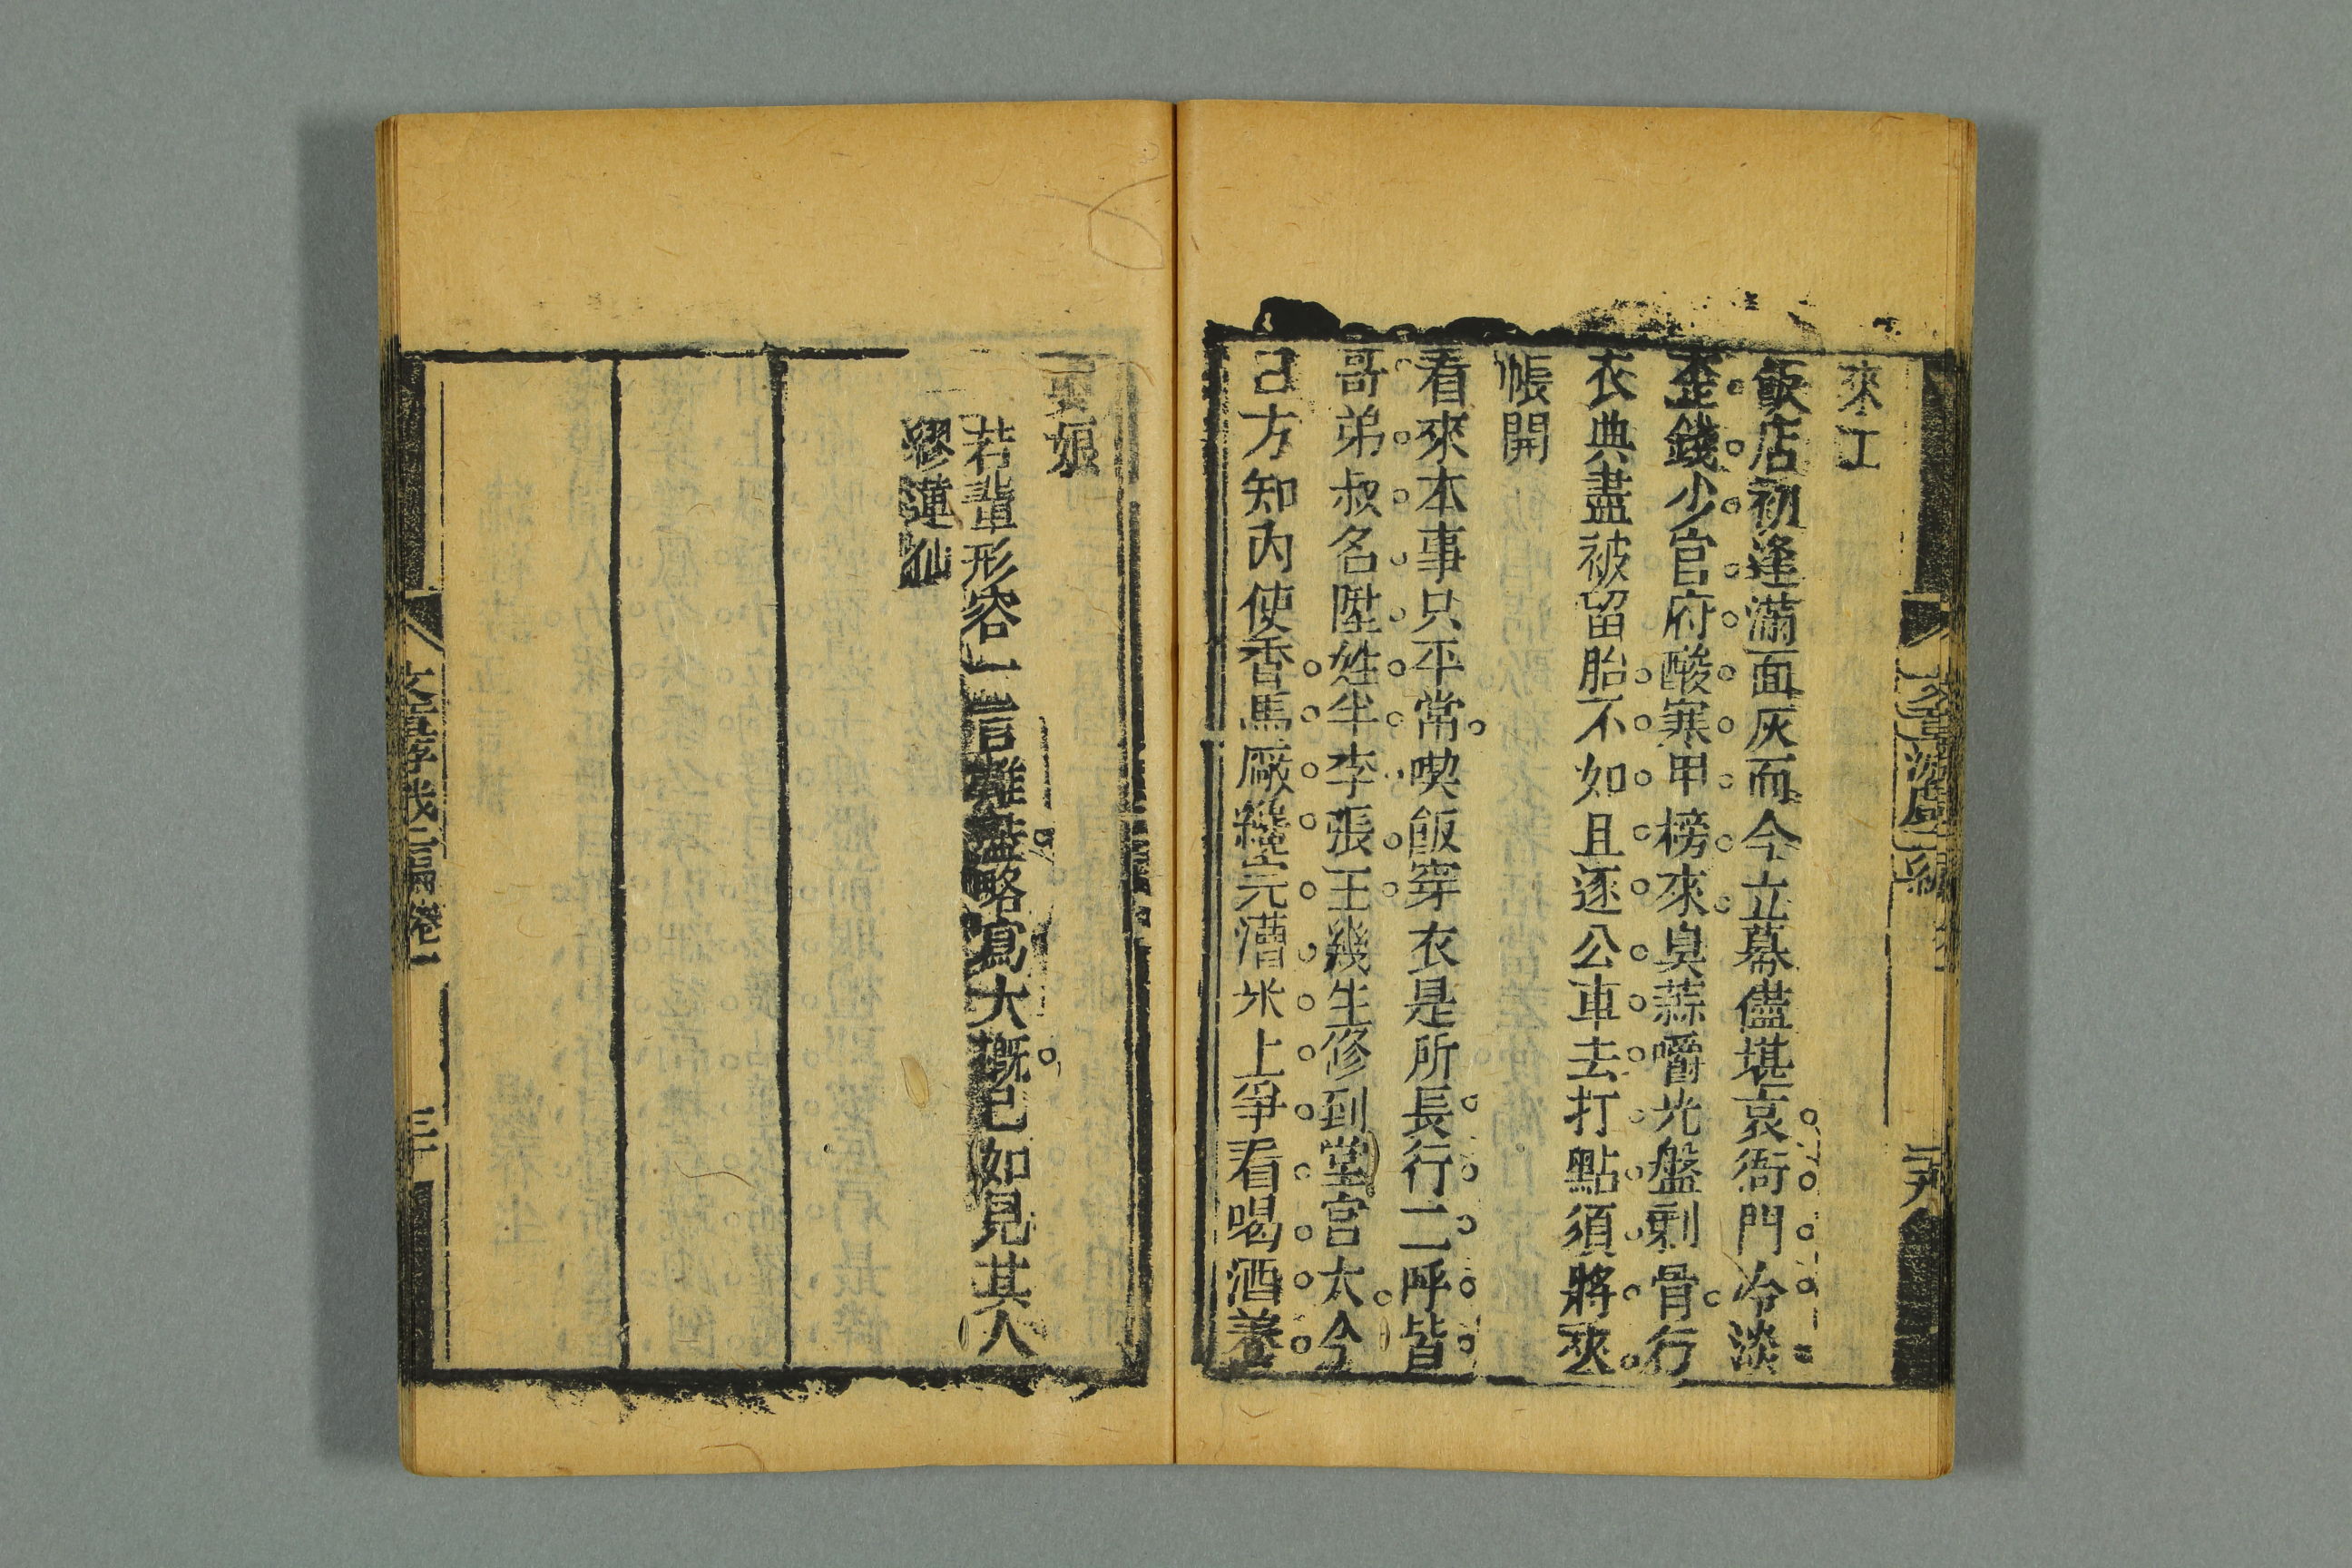 來工
飯店初逢滿面灰而今立幕儘堪哀衙門冷淡
差錢少官府酸寒甲榜來臭蒜嚼光盤剩骨行
衣典盡被留胎不如且逐公車去打點須將夾
帳開
看來本事只平常喫飯穿衣是所長行二呼皆
哥弟叔名陞姓半李張王幾生修到堂官太今
己方知內使香馬廠纔完漕米上爭看喝酒養
娘
若輩形容一言難盡略寫大概已如見其人
繆蓮仙
文章游戲二編 卷一 三十
文章游戲二編